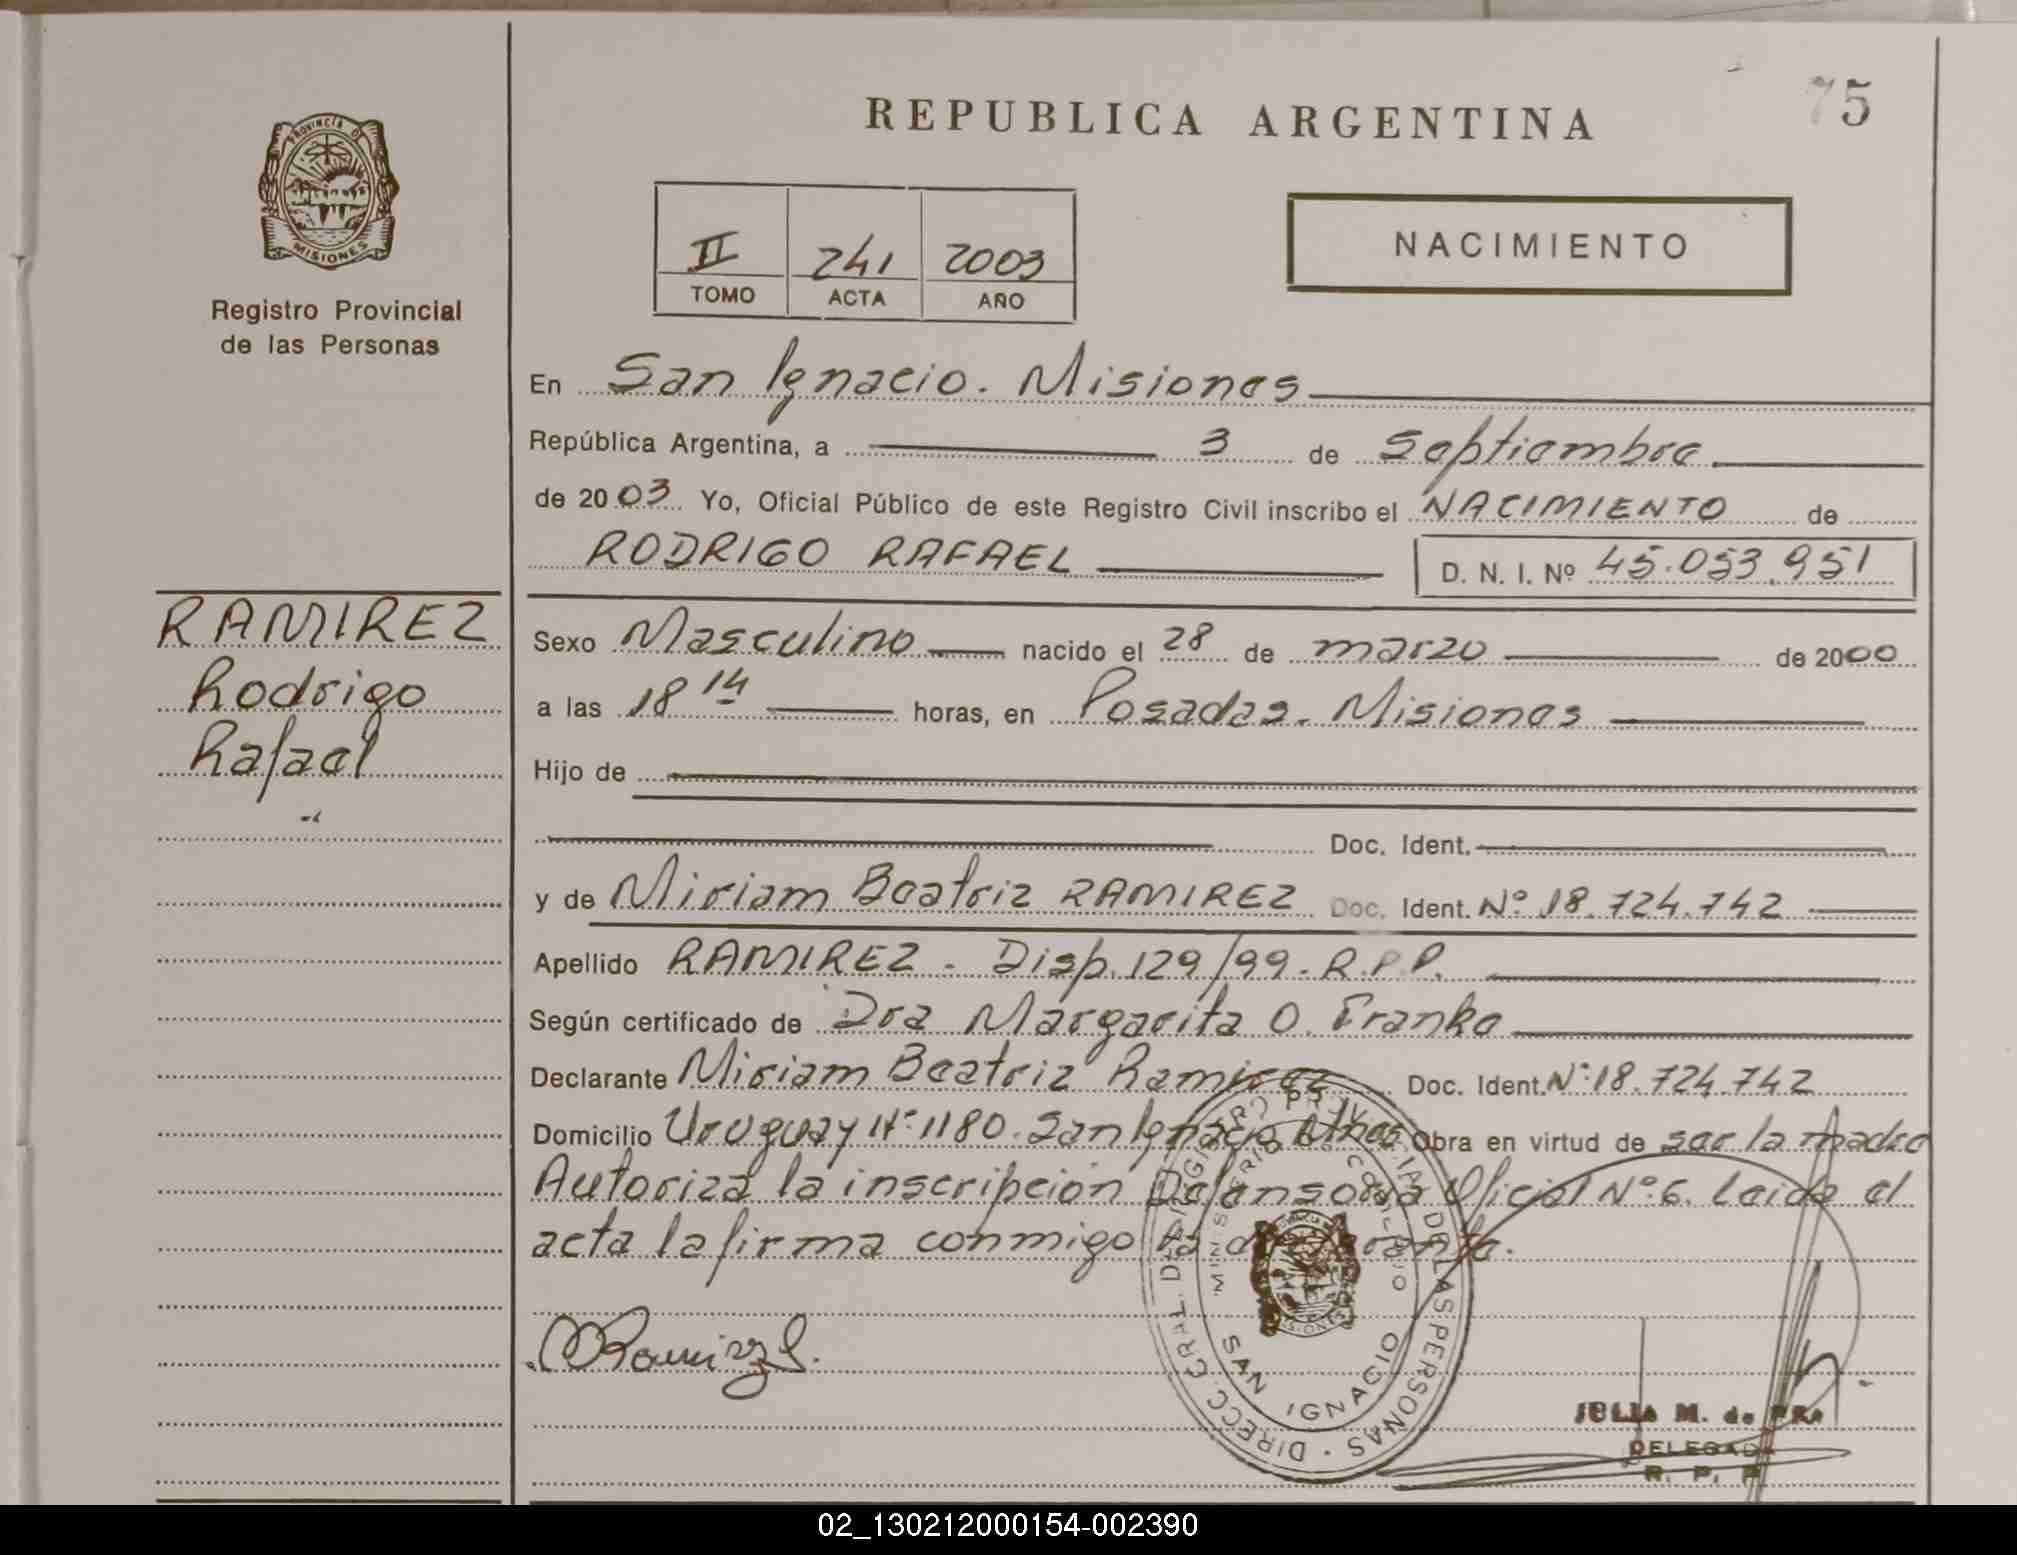 75
REPUBLICA ARGENTINA
PROVINCIA D
MISIONES
Registro Provincial
de las Personas
II 241 2003
TOMO ACTA AÑO
NACIMIENTO
En San Ignacio. Misiones
República Argentina, a 3 de Septiembre
de 2003 Yo, Oficial Público de este Registro Civil inscribo el NACIMIENTO de
RODRIGO RAFAEL D. N. I. Nº 45.053.951
RAMIREZ
Rodrigo
Rafael
Sexo Masculino nacido el 28 de marzo de 2000
a las 18 14 horas, en Posadas. Misiones
Hijo de
Doc. Ident.
y de Miriam Beatriz RAMIREZ Doc. Ident. Nº 18.724.742
Apellido RAMIREZ - Disp. 129/99. R.P.P.
Según certificado de Dra Margarita O. Franke
Declarante Miriam Beatriz Ramirez Doc. Ident. Nº 18.724.742
Domicilio Uruguay Nº 1180. San Ignacio Mnes Obra en virtud de ser la madre
Autoriza la inscripción Defensora Oficial Nº 6. Leida el
acta la firma conmigo la declarante.
Ramirez
DIRECC. GRAL. DEL REGISTRO PROVINCIAL DE LAS PERSONAS
SAN IGNACIO
JULIA M. de
DELEGADA
R. P. P.
02_130212000154-002390